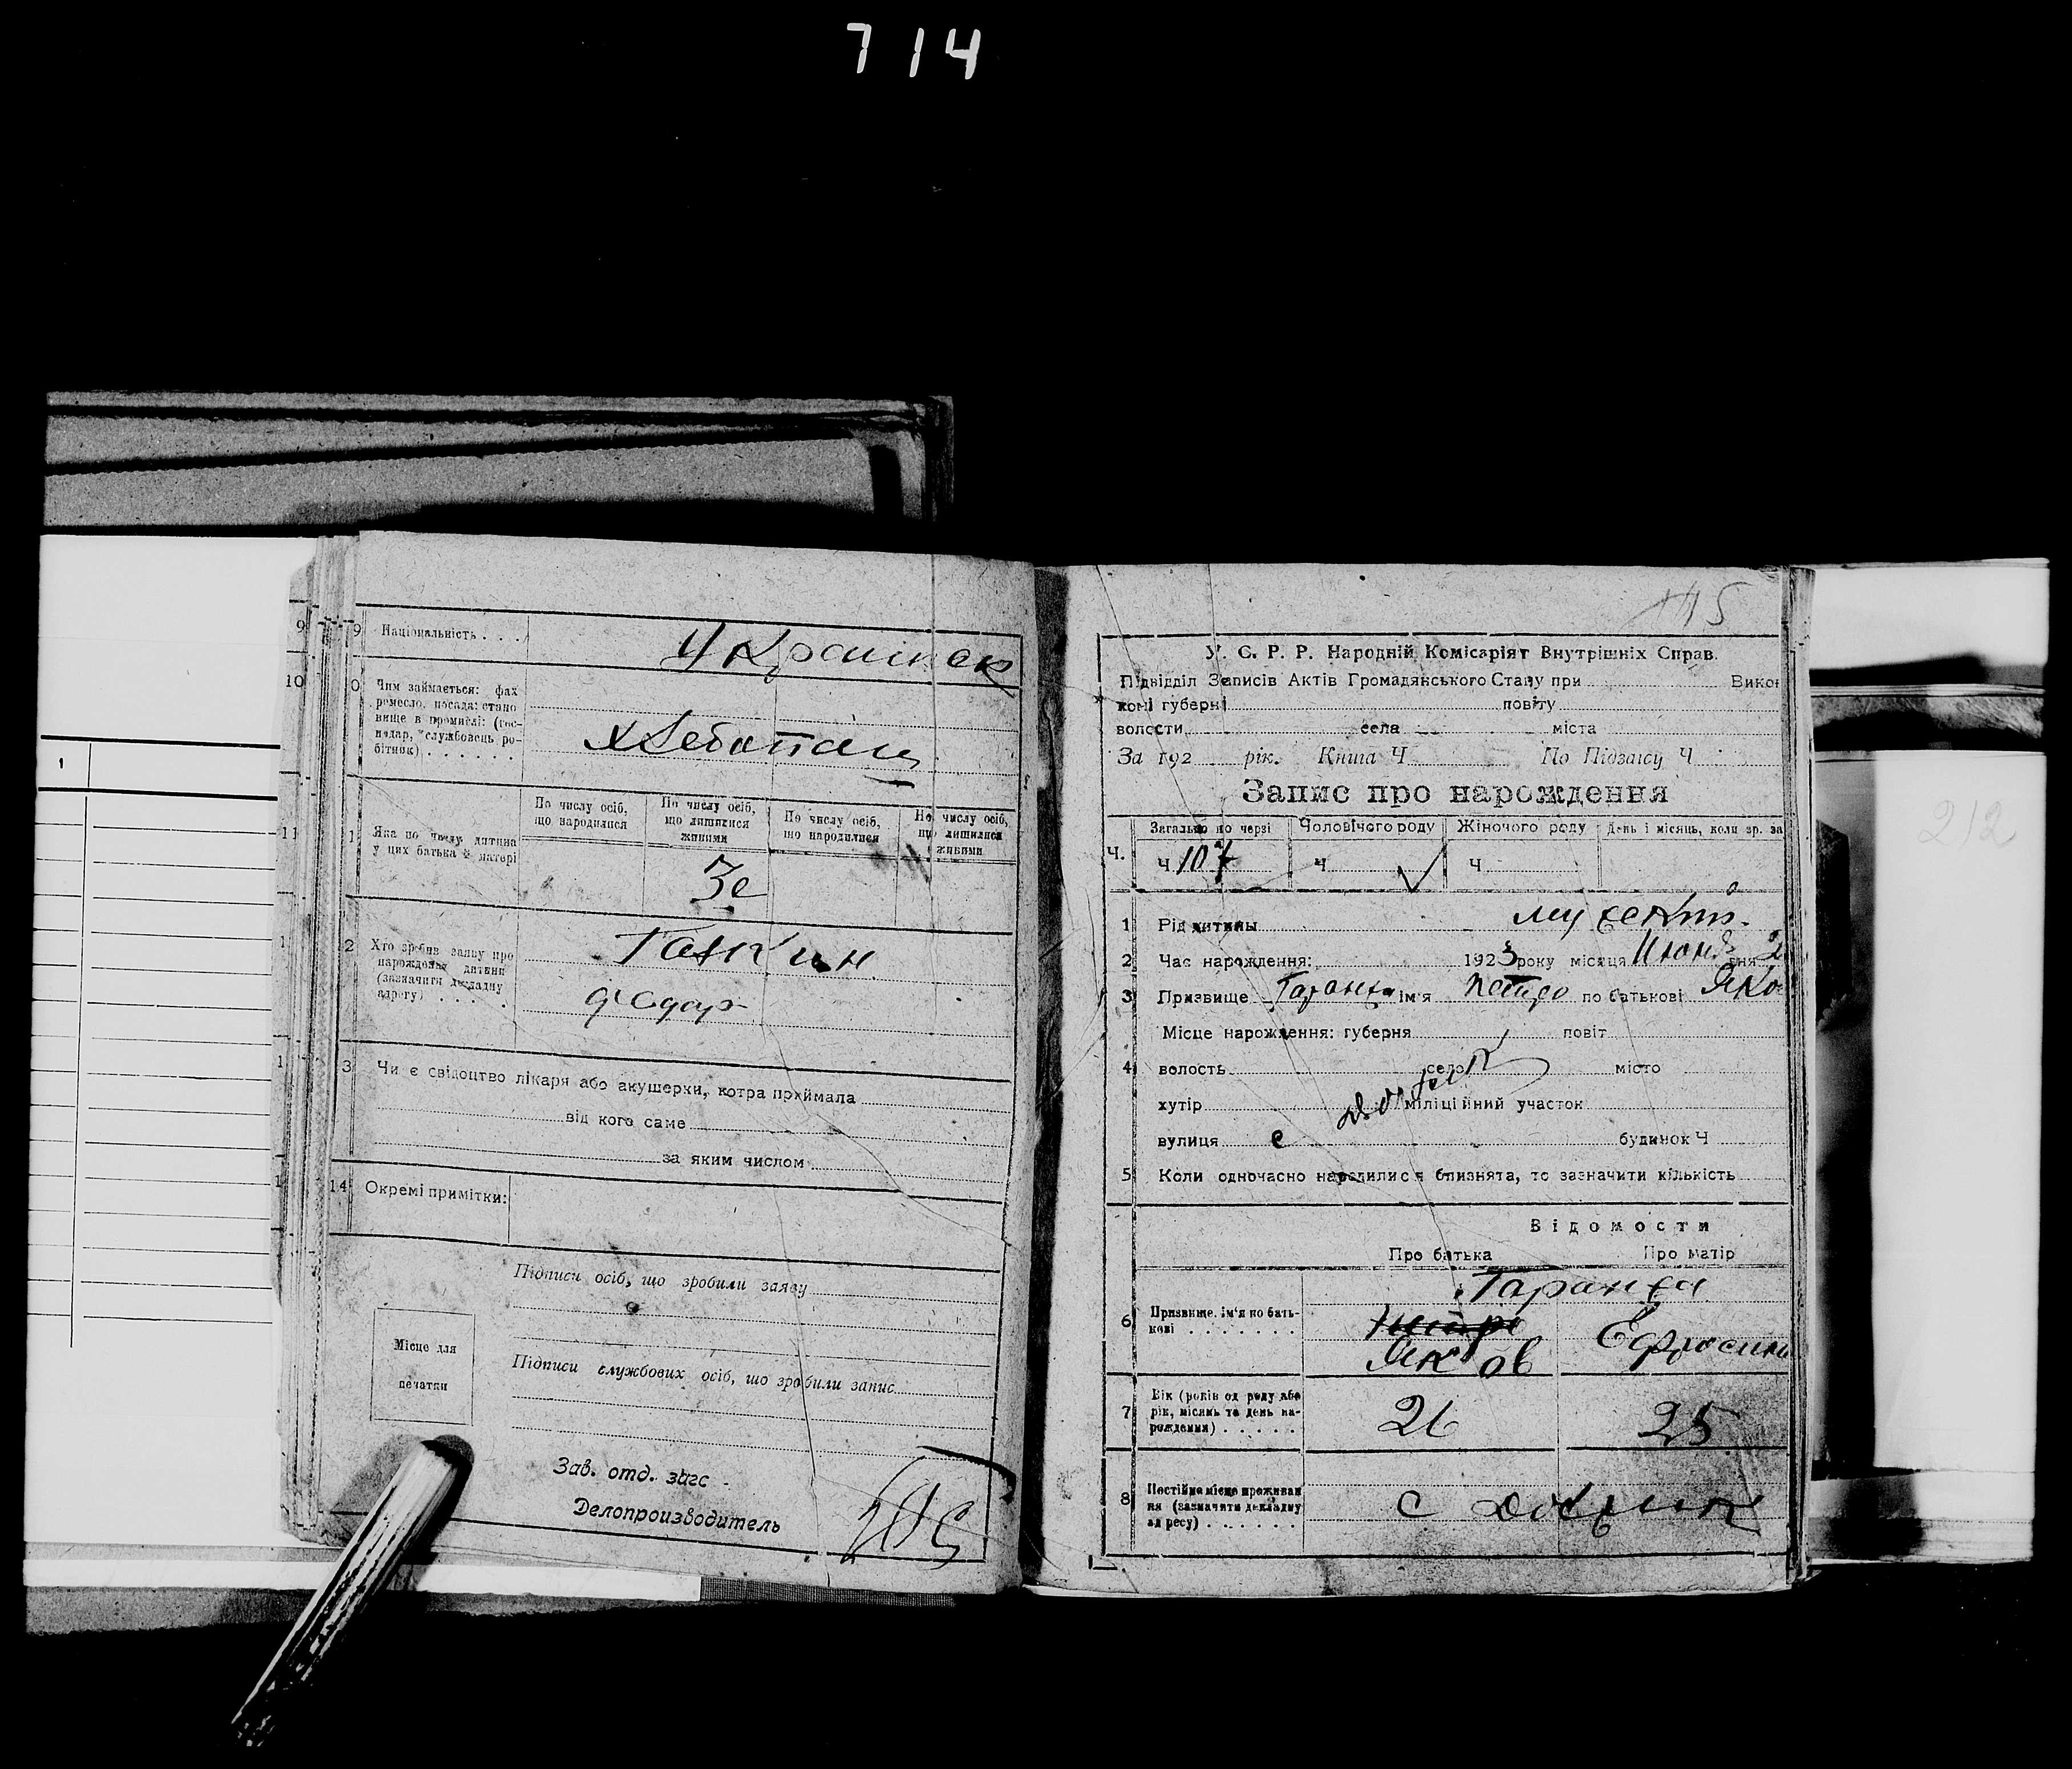 714
9 Національність . . .
Украінск
10 Чим займається: фах
ремесло, посада: стано
вище в промислі: (гос-
подар, службовець ро-
бітник) . . . . . .
хлебопаш
11 Яка по числу дитина
у цих батька й матері
По числу осіб,
що народилися
По числу осіб,
що лишилися
живими
По числу осіб,
що народилися
По числу осіб,
що лишилися
живими
3е
12 Хто зробив заяву про
народження дитини
(зазначити докладну
адресу) . . . .
Федор
13 Чи є свідоцтво лікаря або акушерки, котра приймала
від кого саме
за яким числом
14 Окремі примітки:
Підписи осіб, що зробили заяву
Місце для
печатки
Підписи службових осіб, що зробили запис
Зав. отд. загс
Делопроизводитель
У. С. Р. Р. Народній Комісаріят Внутрішніх Справ.
Підвідділ Записів Актів Громадянського Стану при Викон
комі губерні повіту
волости села міста
За 192 рік. Книга Ч По Підзапсу Ч
Запис про нарождення
Ч. Загально по черзі Чоловічого роду Жіночого роду День і місяць, коли зр. за
Ч 107 Ч Ч
1 Рід дитини
2 Час нарождення: 1923 року місяця Июня дня 2
3 Призвище ім'я Петро по батькові Яко
Місце нарождення: губерня повіт
4 волость село місто
хутір міліційний участок
вулиця с будинок Ч
5 Коли одночасно народилися близнята, то зазначити кількість
Відомости
Про батька Про матір
6 Призвище, ім'я по бать-
кові . . . . . . .
Яков Ефросиня
7 Вік (років од роду або
рік, місяць та день на-
рождення) . . . . .
26 25
8 Постійне місце проживан
ня (зазначити докладну
адресу) . . . . . .
с
212